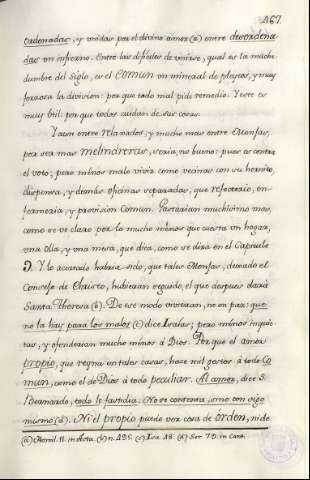 467
ordenadas, y unidas por el divino amor (a) entre desordena-
das un infierno. Entre las difíciles de unirse, qual es la muche-
dumbre del siglo, es el COMUN un mineral de pleytos, y muy
forzosa la división: por que todo mal pide remedio. Y este es
muy util: por que todos cuidan de sus cosas.
Y aun entre relaxados, y mucho mas entre Monjas,
por ser mas melindreras, seria, no bueno: pues es contra
el voto; pero menos malo vivir como vecinas con su huerto,
dispensa, y demás oficinas separadas, que refectorio, en-
fermeria, y provision comun. Gastarian muchisimo mas,
como se ve claro por lo mucho menos que cuesta un hogar,
una olla, y una mesa, que diez, como se dirá en el Capitulo
9. Y lo acertado habria sido, que tales Monjas, dexado el
Consejo de Christo, hubieran seguido el que despues dará
Santa Theresa (b). De ese modo vivirian, no en paz: que
no la hay para los malos (c) dice Isaias; pero menos inquie-
tas, y ofenderian mucho menos á Dios. Por que el amor
propio, que reyna en tales casas, hace mil gestos á todo Co-
mun, como el de Dios á todo peculiar. Al amor, dice S.
Bernardo, todo le fastidia: No se contenta, sino con sigo
mismo (d). Ni el propio puede ver cosa de orden, ni de
(a) Homil. 11. in Acta. (b) n. 125. (c) Isa. 48. (d) Ser. 79. in Cant.